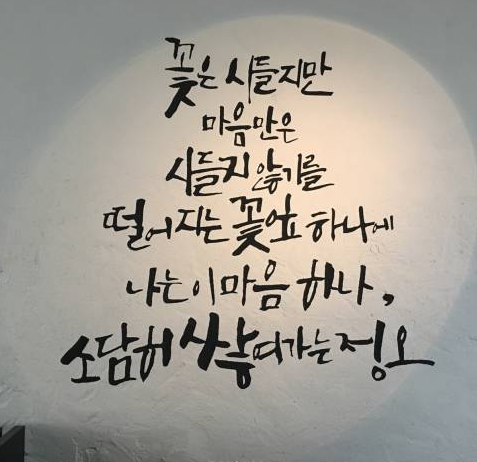 꽃은 시들지만
마음만은
시들지 않기를
떨어지는 꽃잎 하나에
나는 이 마음 하나,
소담히